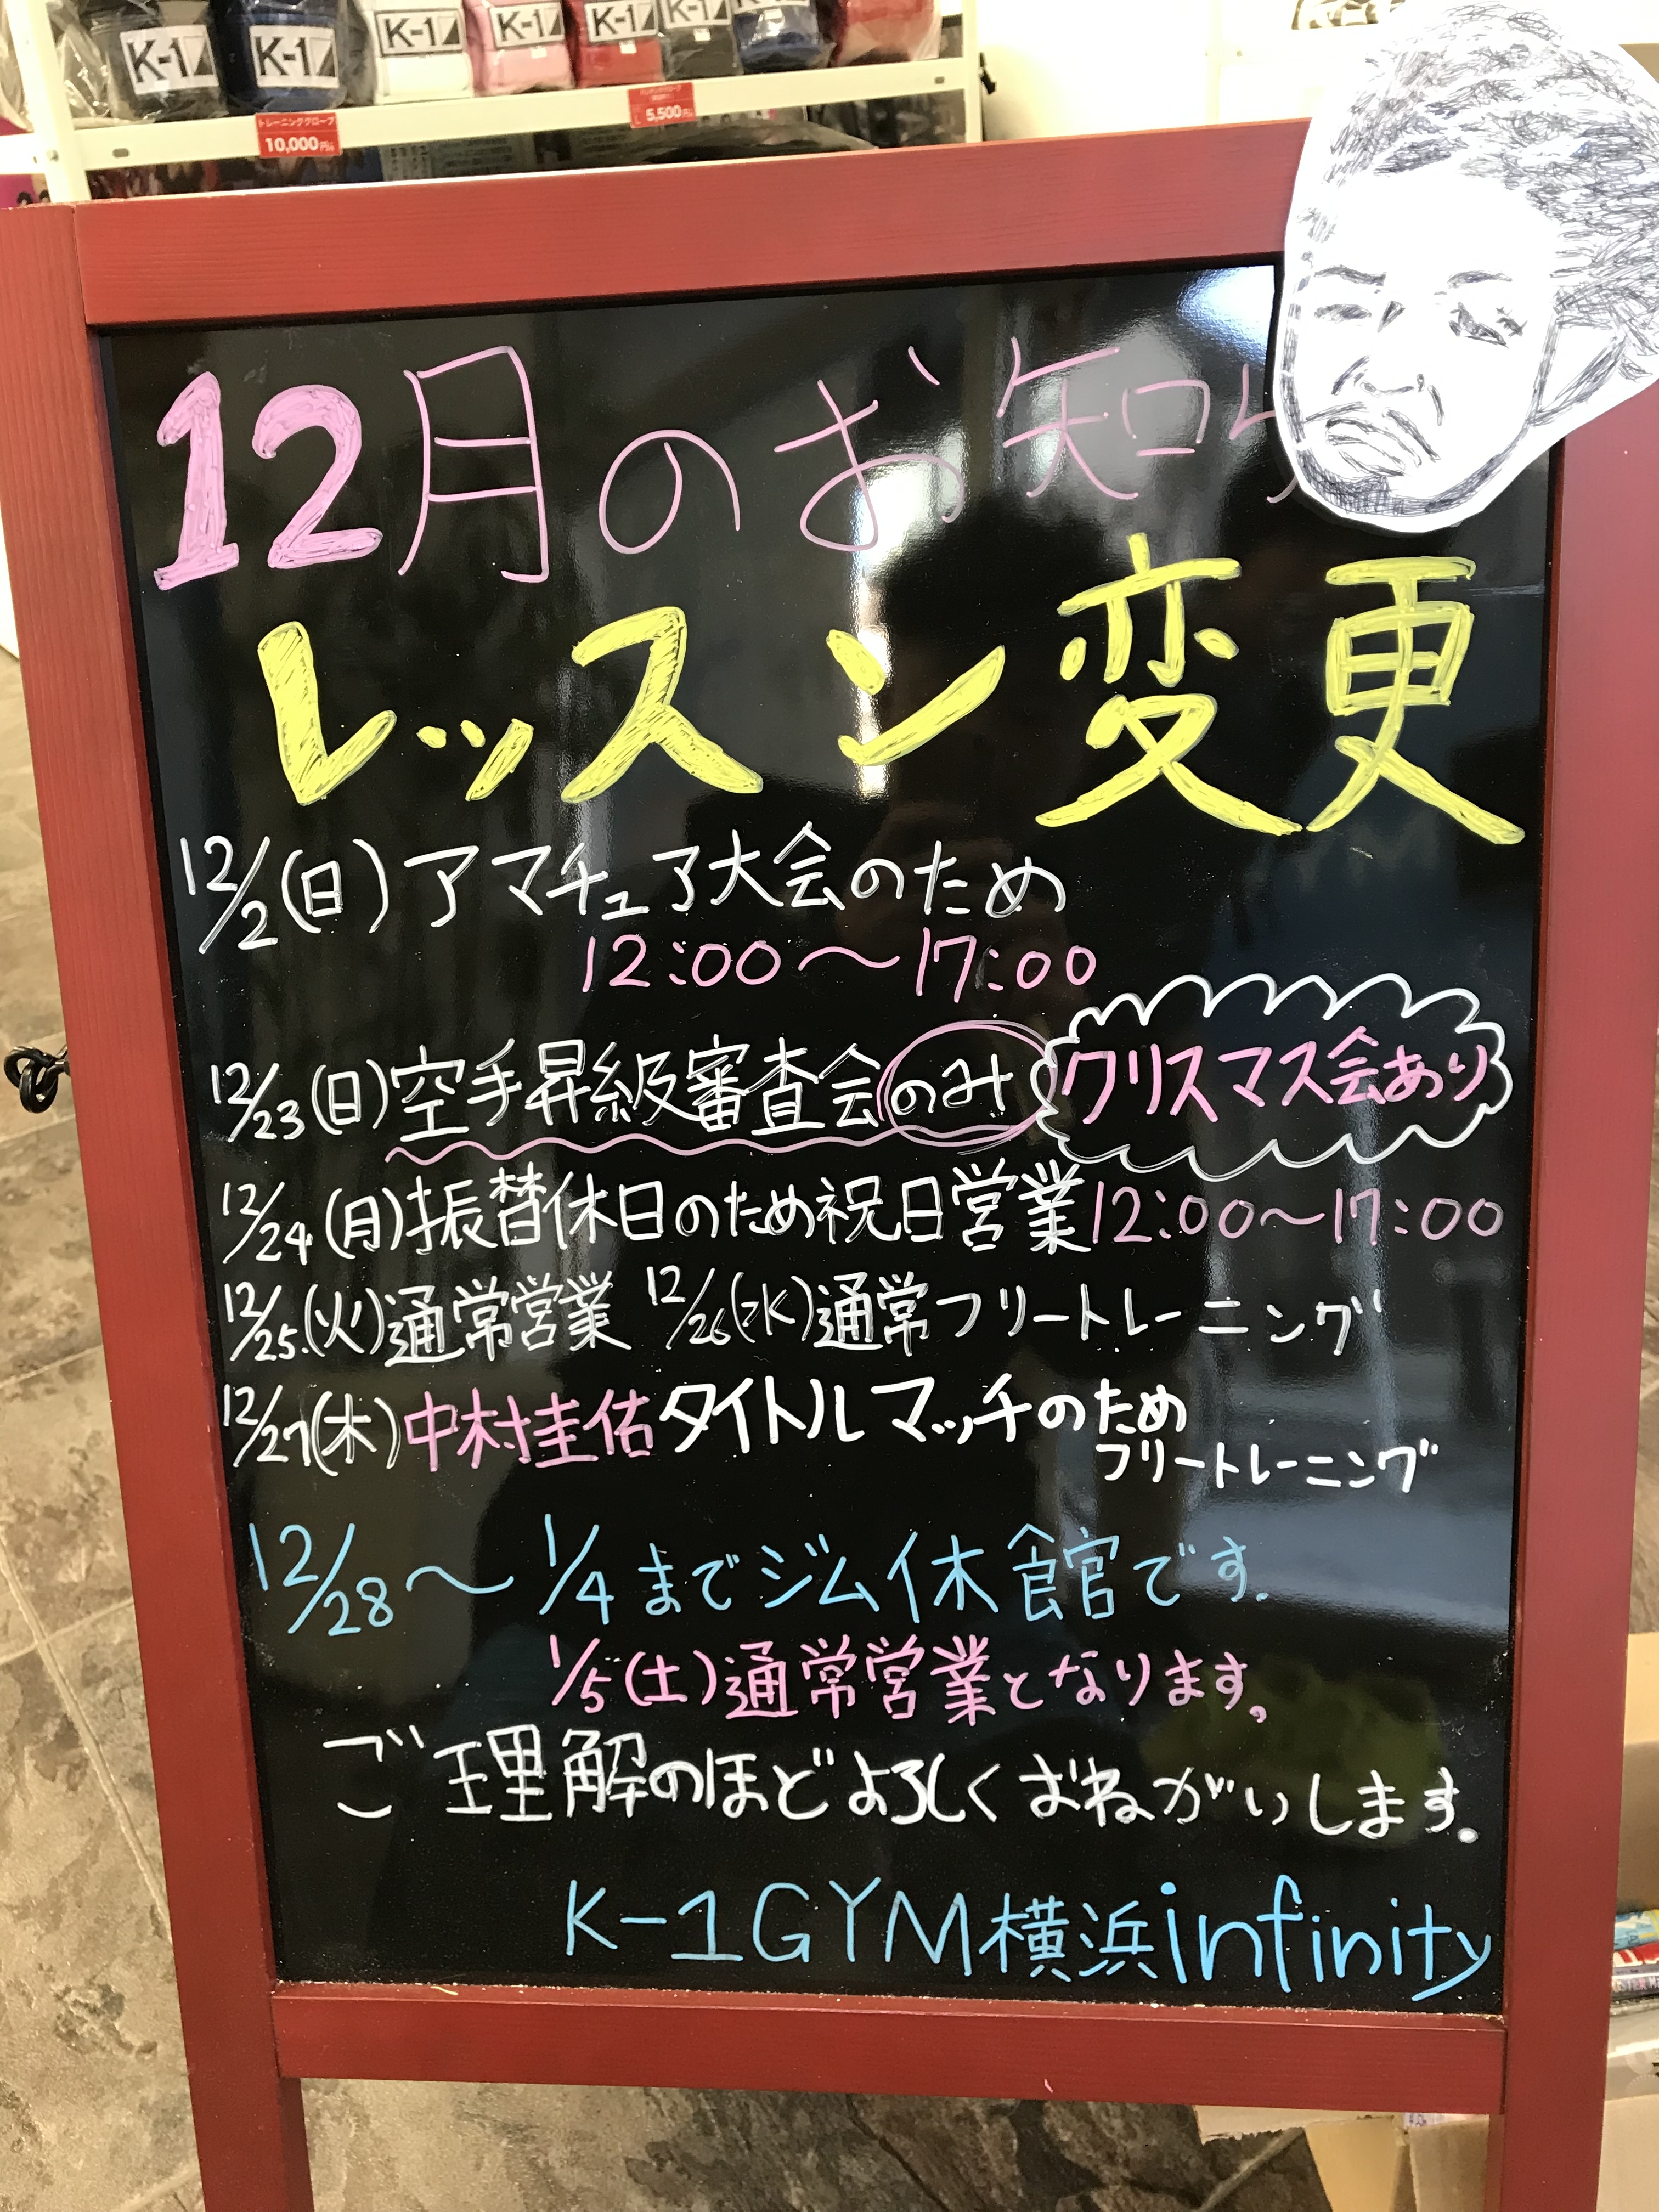 K-1
K-1
K-1
K-1
K-1
K-1
K-1
トレーニンググローブ
10,000円
5,500円
12月のお知ら
レッスン変更
12/2(日)アマチュア大会のため
12:00〜17:00
12/23(日)空手昇級審査会のみ クリスマス会あり
12/24(月)振替休日のため祝日営業12:00〜17:00
12/25(火)通常営業 12/26(水)通常フリートレーニング
12/27(木)中村圭佑タイトルマッチのため
フリートレーニング
12/28〜1/4までジム休館です.
1/5(土)通常営業となります。
ご理解のほどよろしくおねがいします。
K-1GYM横浜infinity